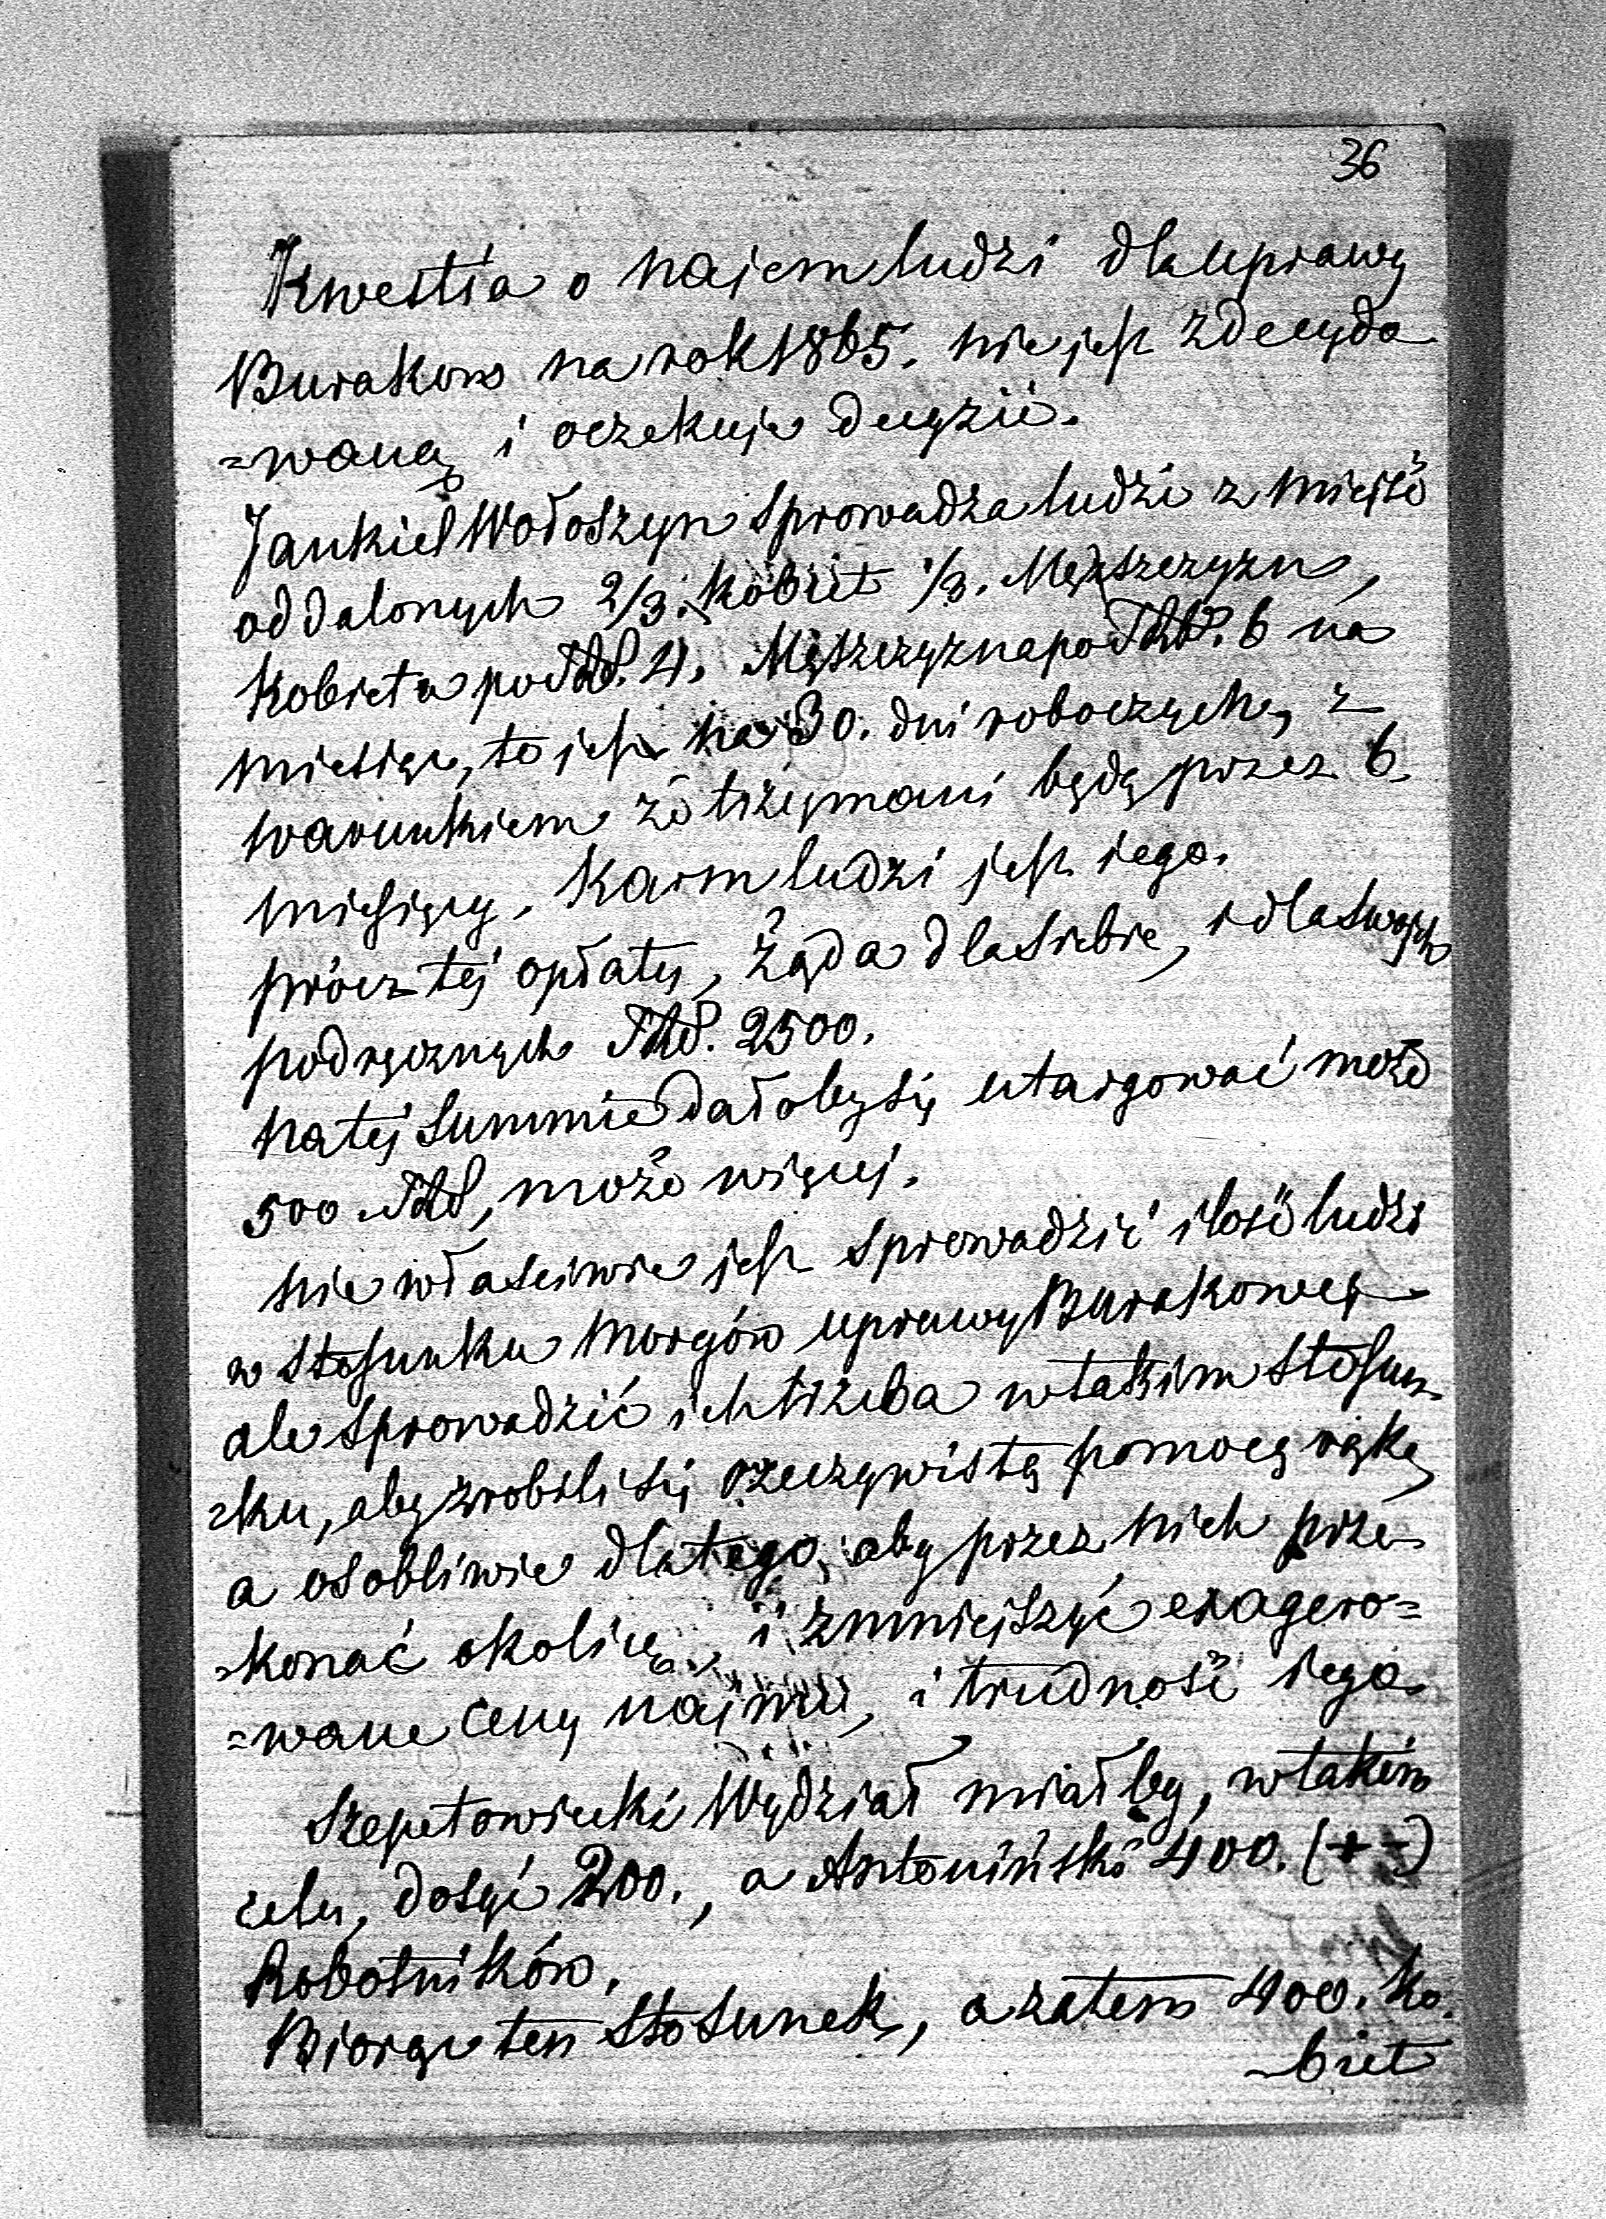 36
Kwestia o najem ludzi dla uprawy
Burakow na rok 1865. nie jest zdecydo
=waną i oczekuje decyzii.
Jankiel Wołoszyn sprowadza ludzi z miejsc
oddalonych 2/3. kobiet 1/3. Męższczyzn,
Kobieta po Rbl. 4. Męszczyzna po Rbl. 6 na
miesiąc, to jest na 30. dni roboczych, z
warunkiem że trzymani będą przez 6
miesięcy. Karm ludzi jest jego.
prócz tej opłaty, żąda dla siebie, i dla swych
podręcznych Rbl. 2500.
na tej summie dałoby się utargować może
500 Rbl, może więcej.
nie właściwie jest sprowadzić ilość ludzi
w stosunku morgów uprawy Burakowej
ale sprowadzić ich trzeba w takim stosun
=ku, aby zrobili się rzeczywistą pomocą rąk,
a osobliwie dla tego, aby przez nich prze
=konać okolicę, i zmniejszyć exagero=
=wane ceny najmu, i trudność jego
Szepetowiecki Wydział miałby, w takim
celu, dosyć 200., a Antoniński 400. (+ -)
Robotników.
Biorąc ten stosunek, a zatem 400. ko
=biet